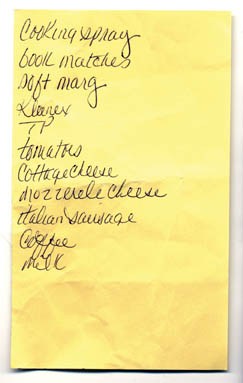 Cooking spray
book matches
soft marg
Kleenex
TP
tomatoes
Cottage cheese
mozzerele cheese
italian sausage
Coffee
milk